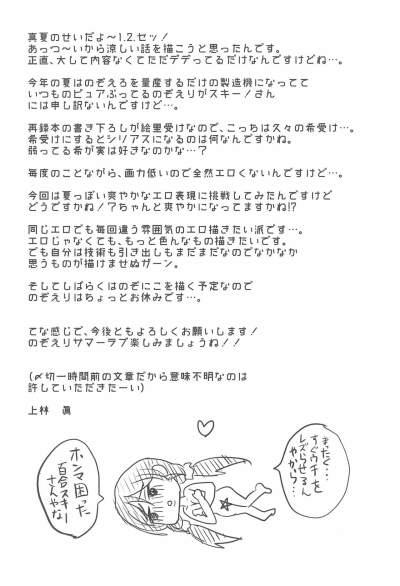 真夏のせいだよ～1.2.セッ！
あっつ～いから涼しい話を描こうと思ったんです。
正直、大して内容なくてただデデってるだけなんですけどね…。
今年の夏はのぞえろを量産するだけの製造機になってて
いつものピュアぶってるのぞえりがスキー！さん
には申し訳ないんですけど…。
再録本の書き下ろしが絵里受けなので、こっちは久々の希受け…。
希受けにするとシリアスになるのは何なんですかね。
弱ってる希が実は好きなのかな…？
毎度のことながら、画力低いので全然エロくないんですけど…。
今回は夏っぽい爽やかなエロ表現に挑戦してみたんですけど
どうですかね！？ちゃんと爽やかになってますかね!?
同じエロでも毎回違う雰囲気のエロ描きたい派です…。
エロじゃなくても、もっと色んなもの描きたいです。
でも自分は技術も引き出しもまだまだなのでなかなか
思うものが描けませぬガーン。
そしてしばらくはのぞにこを描く予定なので
のぞえりはちょっとお休みです…。
てな感じで、今後ともよろしくお願いします！
のぞえりサマーラブ楽しみましょうね！！
(〆切一時間前の文章だから意味不明なのは
許していただきたーい)
上林　眞
まったく…
すぐウチを
レズらせるん
やから…
ホンマ困った
百合スキー
さんやな